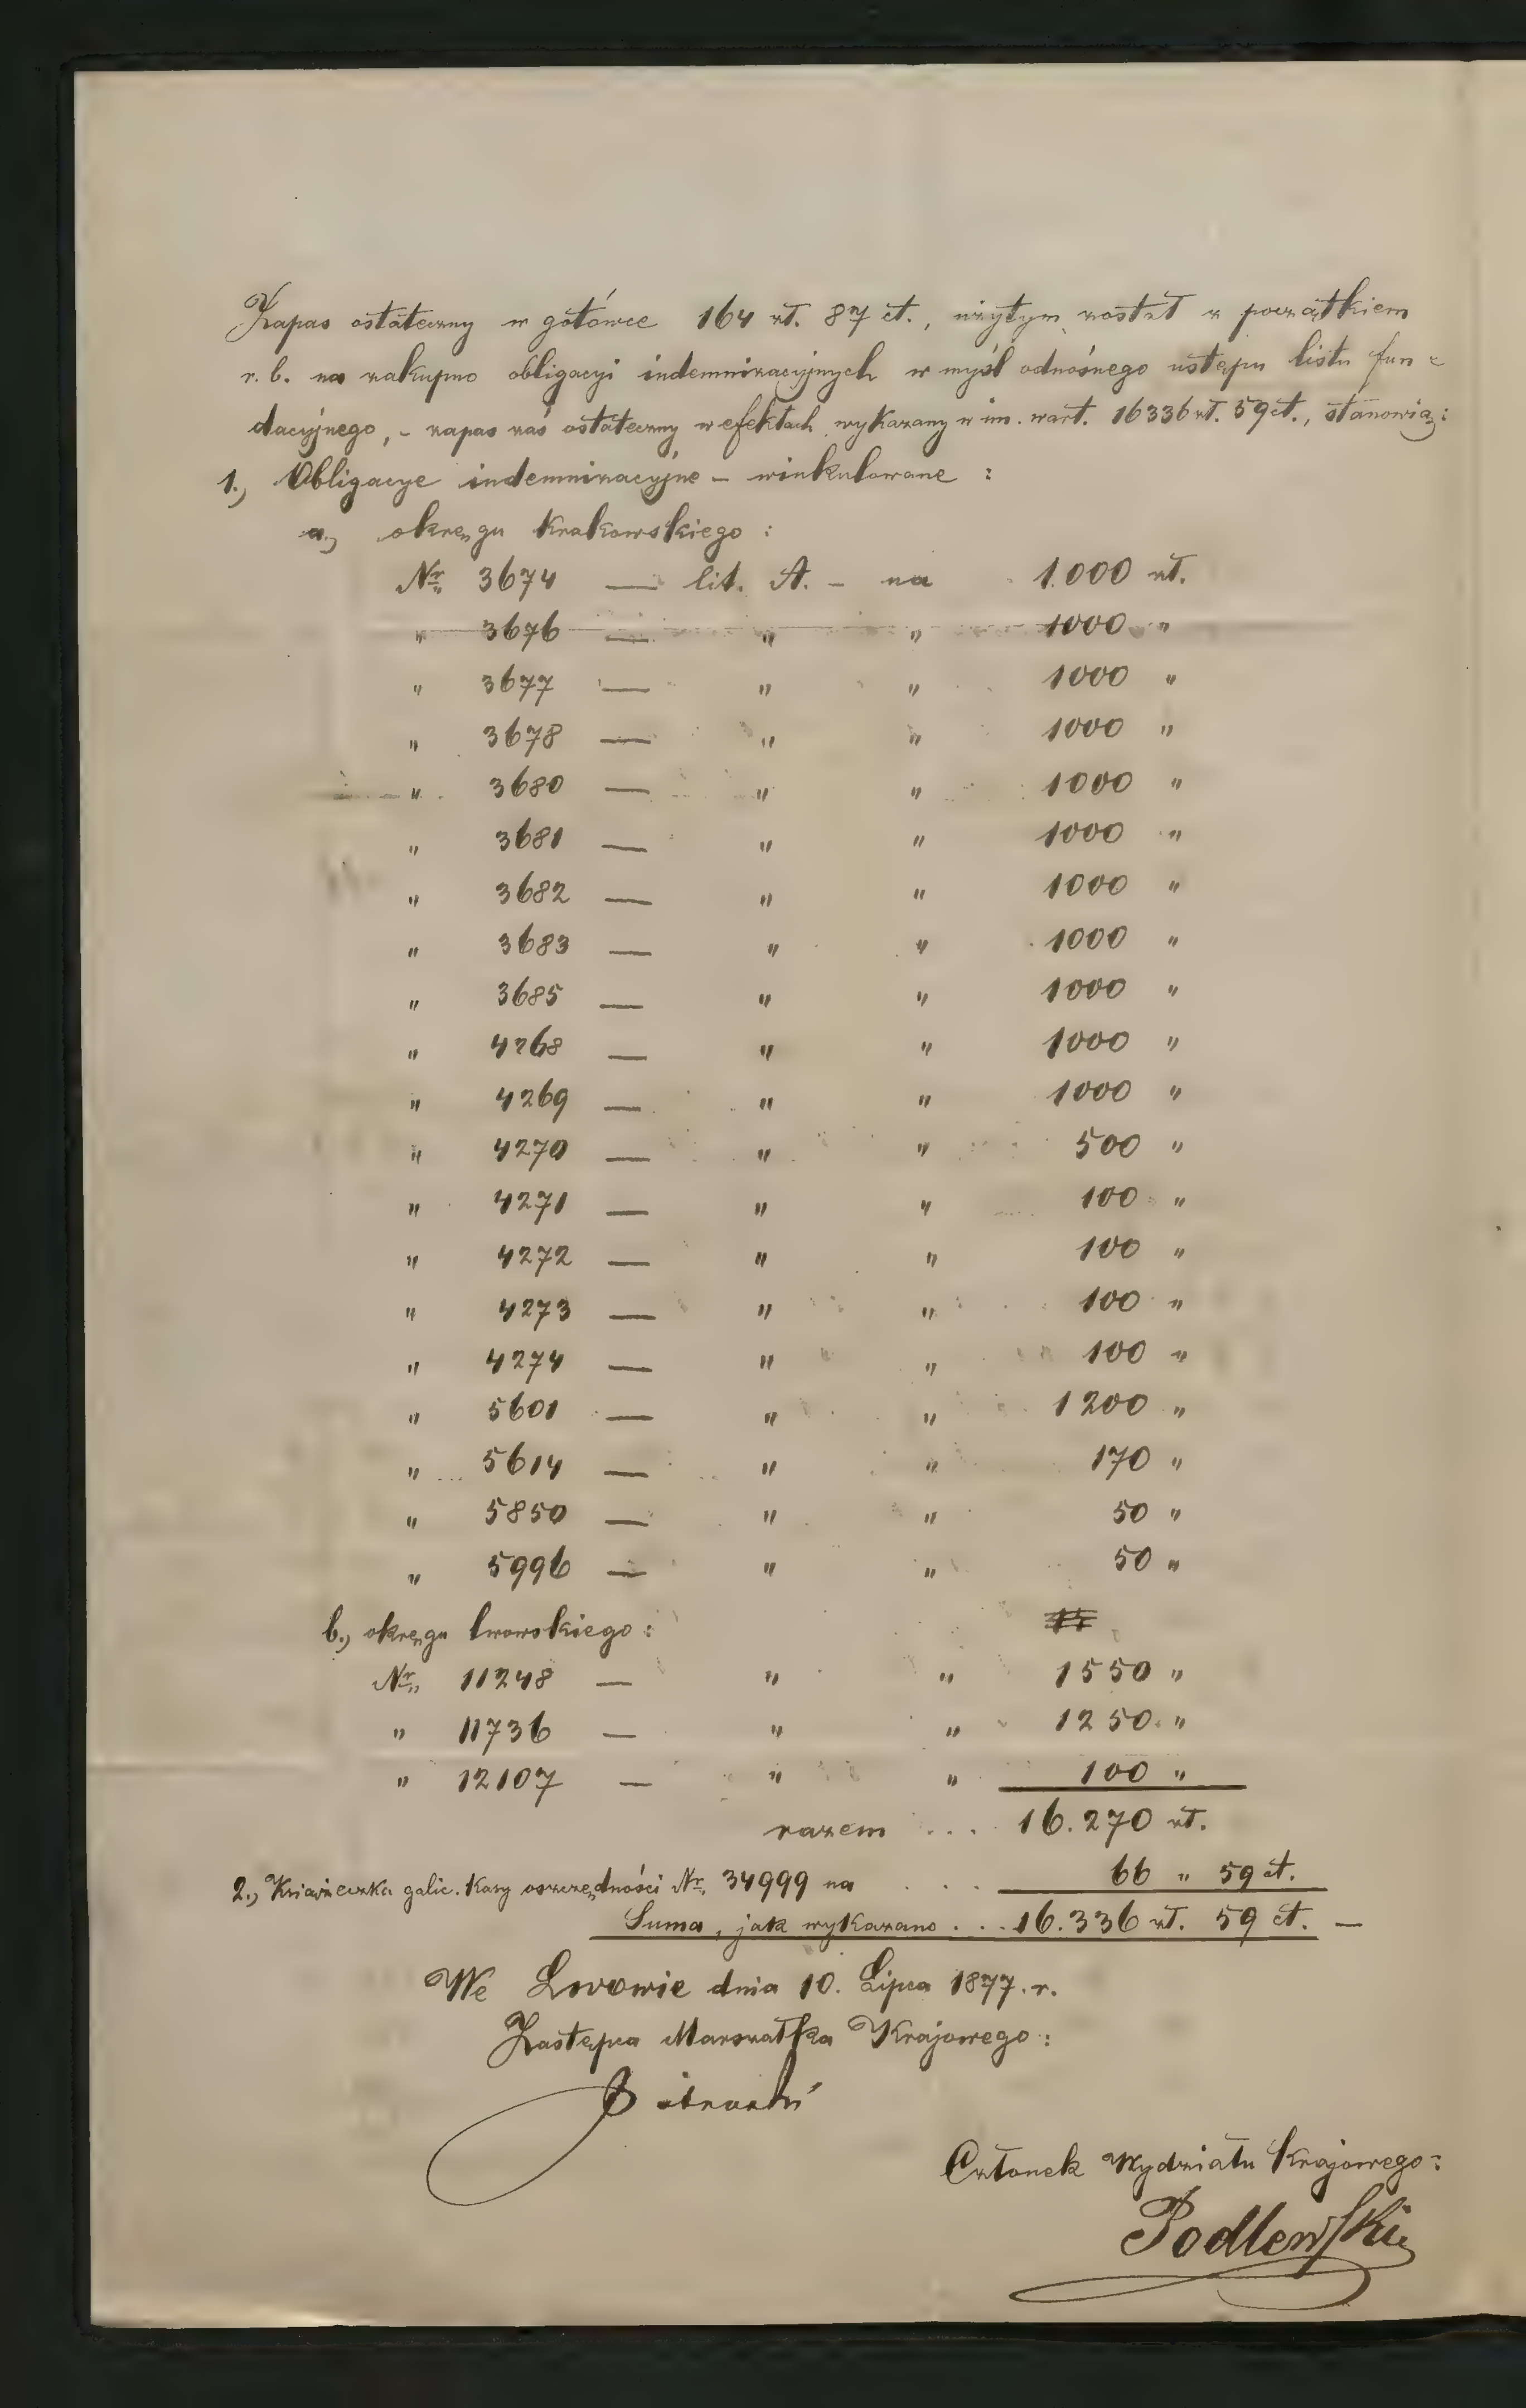 Zapas ostateczny w gotówce 164 zł. 87 ct., użytym został z początkiem
r. b. na zakupno obligacyi indemnizacyjnych w myśl odnośnego ustępu listu fun=
dacyjnego, – zapas zaś ostateczny w efektach wykazany w im. wart. 16336 zł. 59 ct., stanowią:
1., Obligacye indemnizacyjne – winkulowane :
a., okręgu Krakowskiego :
Nr. 3674 — lit. A. – na 1.000 zł.
" 3676 — " " 1000 "
" 3677 — " " 1000 "
" 3678 — " " 1000 "
" 3680 — " " 1000 "
" 3681 — " " 1000 "
" 3682 — " " 1000 "
" 3683 — " " 1000 "
" 3685 — " " 1000 "
" 4268 — " " 1000 "
" 4269 — " " 1000 "
" 4270 — " " 500 "
" 4271 — " " 100 "
" 4272 — " " 100 "
" 4273 — " " 100 "
" 4274 — " " 100 "
" 5601 — " " 1200 "
" 5614 — " " 170 "
" 5850 — " " 50 "
" 5996 — " " 50 "
b., okręgu lwowskiego :
Nr. 11248 — " " 1550 "
" 11736 — " " 1250 "
" 12107 — " " 100 "
razem .... 16.270 zł.
2., Książeczka galic. Kasy oszczędności Nr. 34999 na . . . 66 " 59 ct.
Suma, jak wykazano . . . 16.336 zł. 59 ct. —
We Lwowie dnia 10. Lipca 1877. r.
Zastępca Marszałka Krajowego :
Członek Wydziału Krajowego :
Podlewski